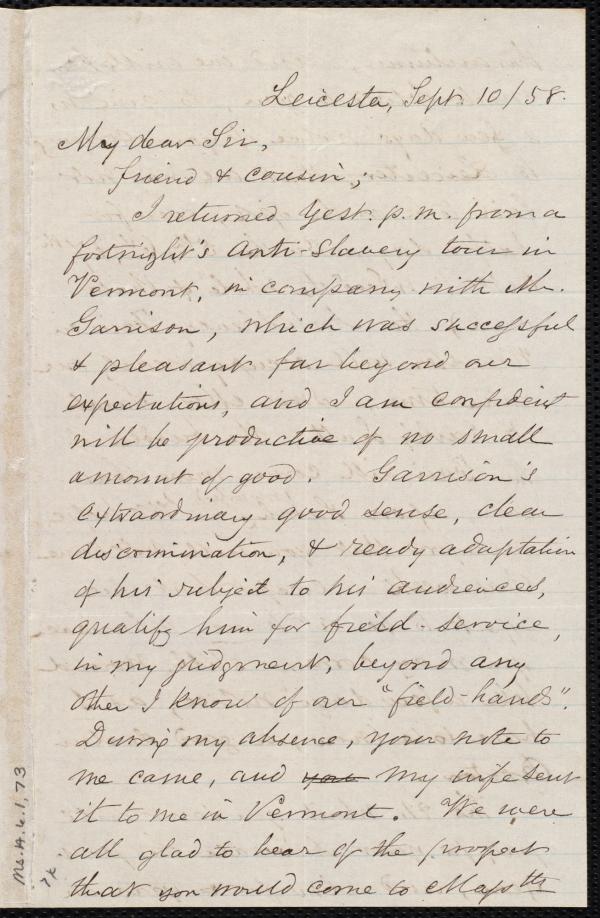 Leicester, Sept. 10/58.
My dear Sir,
friend & cousin;
I returned yest. p.m. from a
fortnight's Anti-Slavery tour in
Vermont, in company with Mr.
Garrison, which was successful
& pleasant far beyond our
expectations, and I am confident
will be productive of no small
amount of good. Garrison's
extraordinary good sense, clear
discrimination, & ready adaptation
of his subject to his audiences,
qualify him for field-service,
in my judgment, beyond any
other I know of our "field-hands".
During my absence, your note to
me came, and your my wife sent
it to me in Vermont. We were
all glad to hear of the prospect
that you would come to Massts
Ms. A. 6. 1, 73